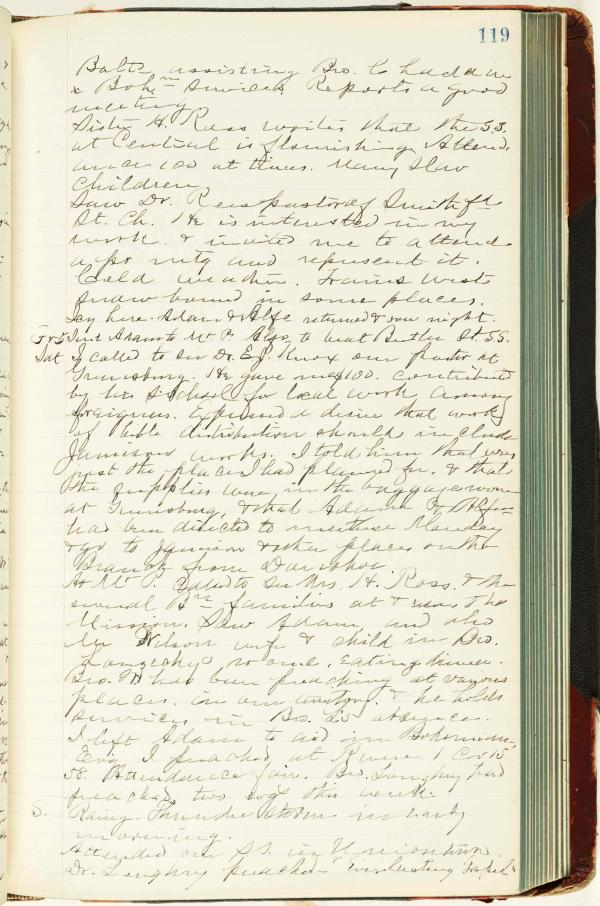 119
Balto assisting Bro. C had a in
& Bohn services. Reports a good
meeting
Sister H. Ross writes that the S.S.
at Central is flourishing. Attend.
ance 100 at times. Many Slav
children
Saw Dr. Rees pastor of Smithfd
St. Ch. He is interested in my
work. & invited me to attend
a pr mtg and represent it.
Cold weather. Trains West
snow bound in some places.
Icy here. Adam & Alfe returned & over night.
Fr 5 Sent Adam to Mt P. Alfe to visit Butler St. S.S.
Sat I called to see Dr. E. J. Knox our pastor at
Greensburg. He gave me $100. contributed
by his S School for local work among
foreigners. Expressed a desire that work
of bible distribution should include
Jamison works. I told him that was
just the place I had planned for. & that
the supplies were in the baggage room
at Greensburg, & that Adam & Alfe
had been directed to meet me Monday
& go to Jamison & other places on the
Branch from Donohoe
At Mt P. Called to see Mrs. H. Ross. & the
several Bn families at & near the
Mission. Saw Adam, and also
Mr Wilson wife & child in Bro.
room. Eating dinner.
Bro. W has been preaching at various
places. in our territory. & he holds
services in Bro. L's absence.
I left Adam to aid in Bohemian
Evg I preached at 1 Cor 15
58. Attendance fair. Bro. had
preached two evgs this week.
S. Rainy. Thunder storm in early
morning.
Attended our S.S. in Uniontown.
Dr. Loughry preached "Everlasting Gospel"